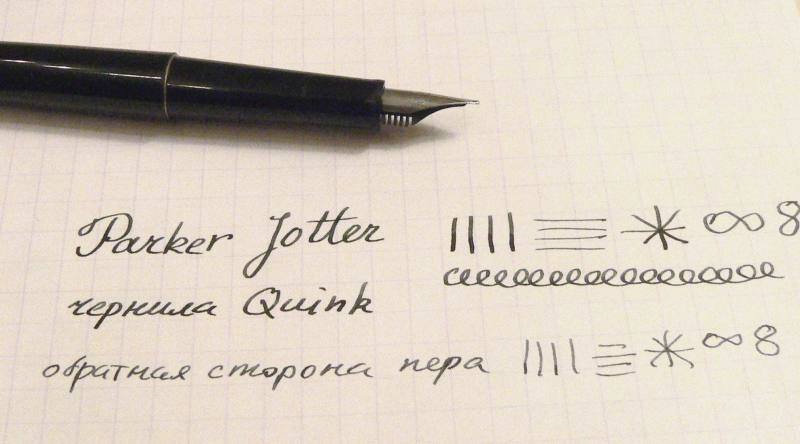 Parker Jotter ∞ 8
чернила Quink
обратная сторона пера ∞ 8